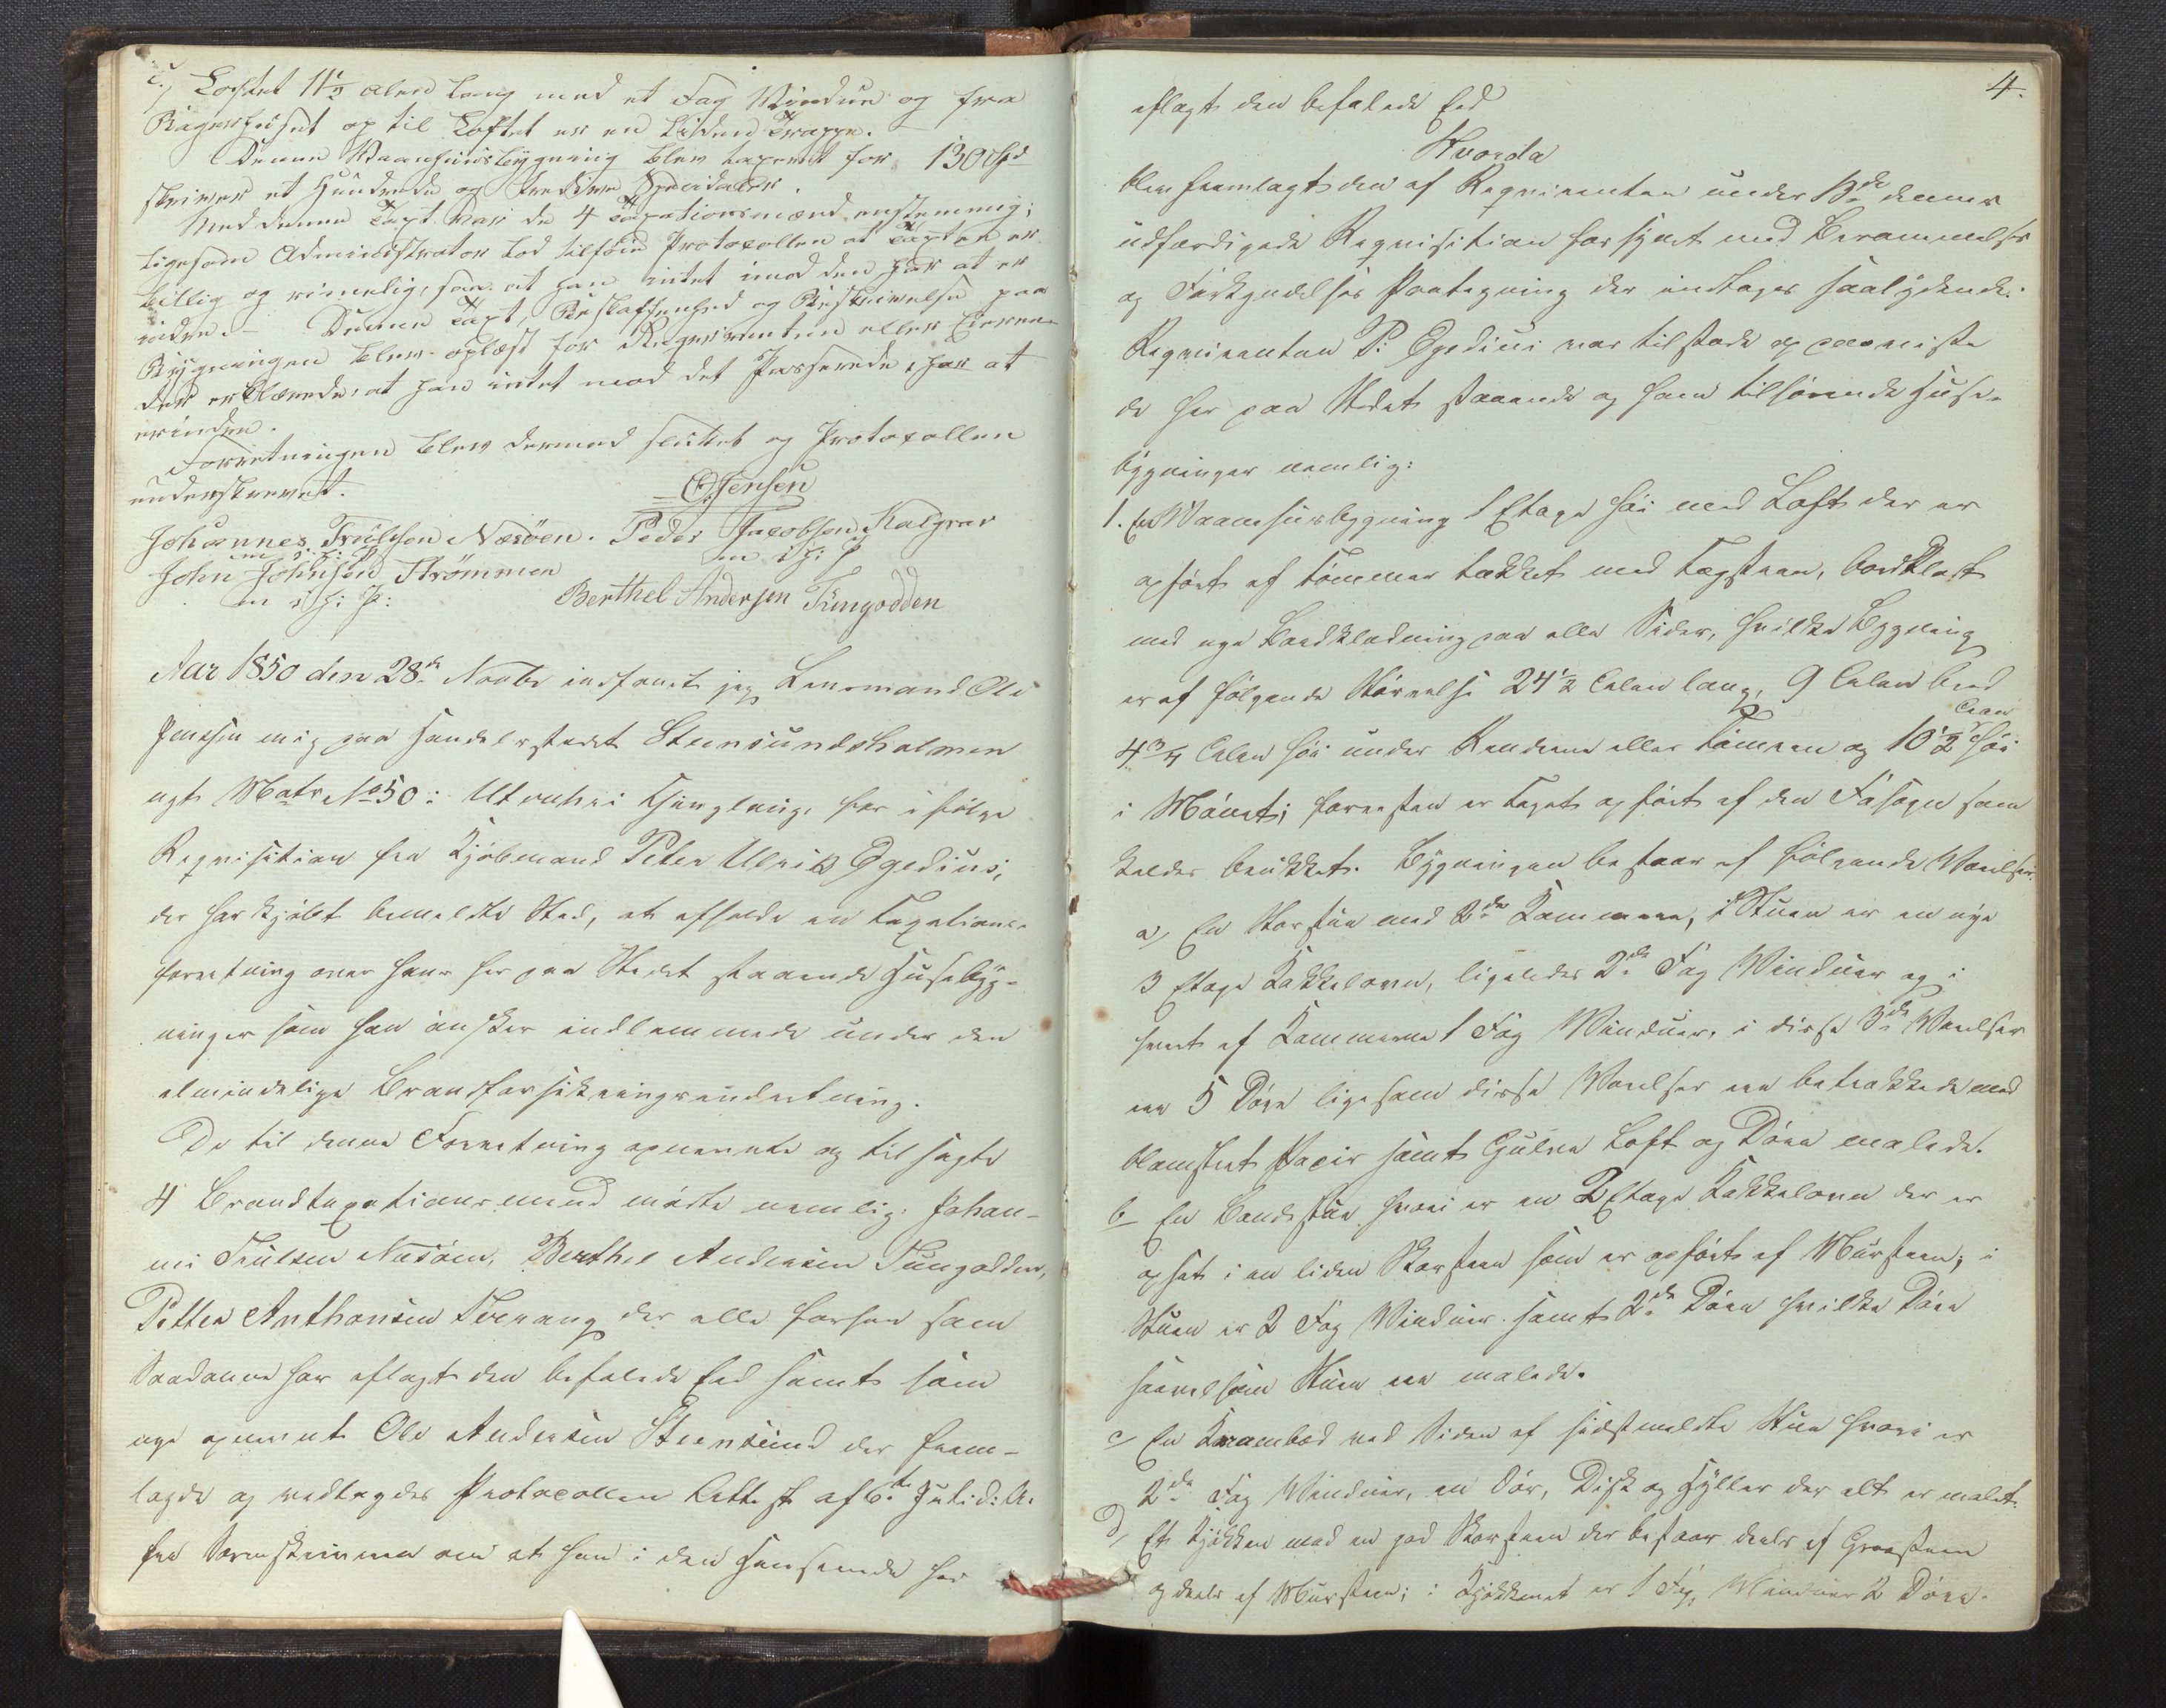 c.) Loftet 11 1/2 Alen lang med et Fag Vindue og fra
Bagerhuset op til Loftet er en liden Trappe.
Denne Vaanhuusbygning blev taxeret for 130 Spd
skriver et Hundrede og tredive Speciedaler.
Med denne Taxt var de 4 Taxationsmænd enstemmig;
ligesom Administrator lod tilføie Protocollen at Taxten er
billig og rimelig, saa at han intet imod den har at er
indre. Denne Taxt, Beskaffenhed og Beskrivelse paa
Bygningen blev oplæst for Reqvirenten eller Eieren
der erklærede, at han intet mod det Passerede har at
erindre.
Forretningen blev dermed sluttet og Protocollen
underskrevet.
O Jensen
Johannes Trulssen Næsøen. Peder Jacobsen Kalgrav
m i h: P m i h: P
John Johnsen Strømmen
m i h: P: Berthel Andersen Tungodden
Aar 1850 den 28de Novbr indfandt jeg Lensmand Ole
Jensen mig paa Handelsstedet Steensundsholmen
ugt Matr No 50 i Utvehri Thinglaug, for i følge
Reqvisition fra Kjøbmand Peter Ulrik Egedius,
der har kjøbt bemeldte Sted, at afholde en Taxations-
forretning over hans her paa Stedet staaende Husebyg-
ninger som han ønsker indlemmede under den
almindelige Brandforsikringsindretning.
De til denne Forretning opnævnte og tilsagte
4 Brandtaxationsmænd mødte nemlig: Johan-
nes Trulsen Næsøen, Berthel Andersen Tungodden,
Petter Anthonsen Tverang der alle forhen som
Saadanne har aflagt den befalede Eed samt som
nye opnævnt Ole Andersen Steensund der frem-
lagde og vedtagdes Protocollen Attest af 6te Juli d: A:
fra Sorenskriveren om at han i den Henseende har
4.
aflagt den befalede Eed
Hvorda
blev fremlagt den af Reqvirenten under 13de dennes
udfærdigede Reqvisition forsynet med Berammelses
og Forkyndelses Paategning der indtages saalydende:
Reqvirenten P. Egedius var tilstede og paaviste
de her paa Stedet staaende og ham tilhørende Huse-
bygninger nemlig:
1. En Vaanehuusbygning 1 Etage høi med Loft der er
opført af Tømmer tækket med Tagsteen, bordklædt
med nye Bordklædning paa alle Sider, hvilke Bygning
er af følgende Størrelse 24 1/2 Alen lang, 9 Alen bred
4 3/4 Alen høi under Randerne eller Tømren og 10 1/2 Alen høi
i Mønet; forresten er Taget opført af den Fasayn som
kaldes brukket. Bygningen bestaar af følgende Værelser:
a) En Storstue med 2de Kammere, i Stuen er en nye
3 Etage Kakkelovn, ligeledes 2de Fag Vinduer og i
hvert af Kammerne 1 Fag Vinduer, i disse 3de Værelser
ere 5 Døre ligesom disse Værelser ere betrækkede med
blomstret Papir samt Gulve Loft og Døre malede.
b En Bondestue hvori er en 2 Etage Kakkelovn der er
opsat i en liden Skorsteen som er opført af Mursteen; i
Stuen er 2 Fag Vinduer samt 2de Døre hvilke Døre
saavelsom Stuen ere malede.
c) En Krambod ved Siden af sidstmeldte Stue hvori er
2de Fag Vinduer, en Dør, Disk og Hyller der alt er malet.
d) Et Kjøkken med en god Skorsteen der bestaar deels af Graasteen
og deels af Mursteen; i Kjøkkenet er 1 Fag Vinduer 2 Døre.